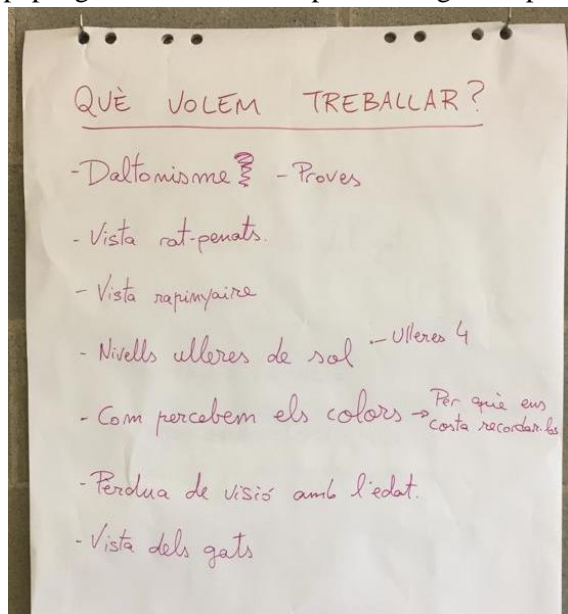 QUÈ VOLEM TREBALLAR?
-Daltonisme - Proves
- Vista rat-penats.
- Vista rapinyaire
- Nivells ulleres de sol - Ulleres 4
- Com percebem els colors → Per què ens
costa recordar-los
- Perdua de visió amb l'edat.
- Vista dels gats